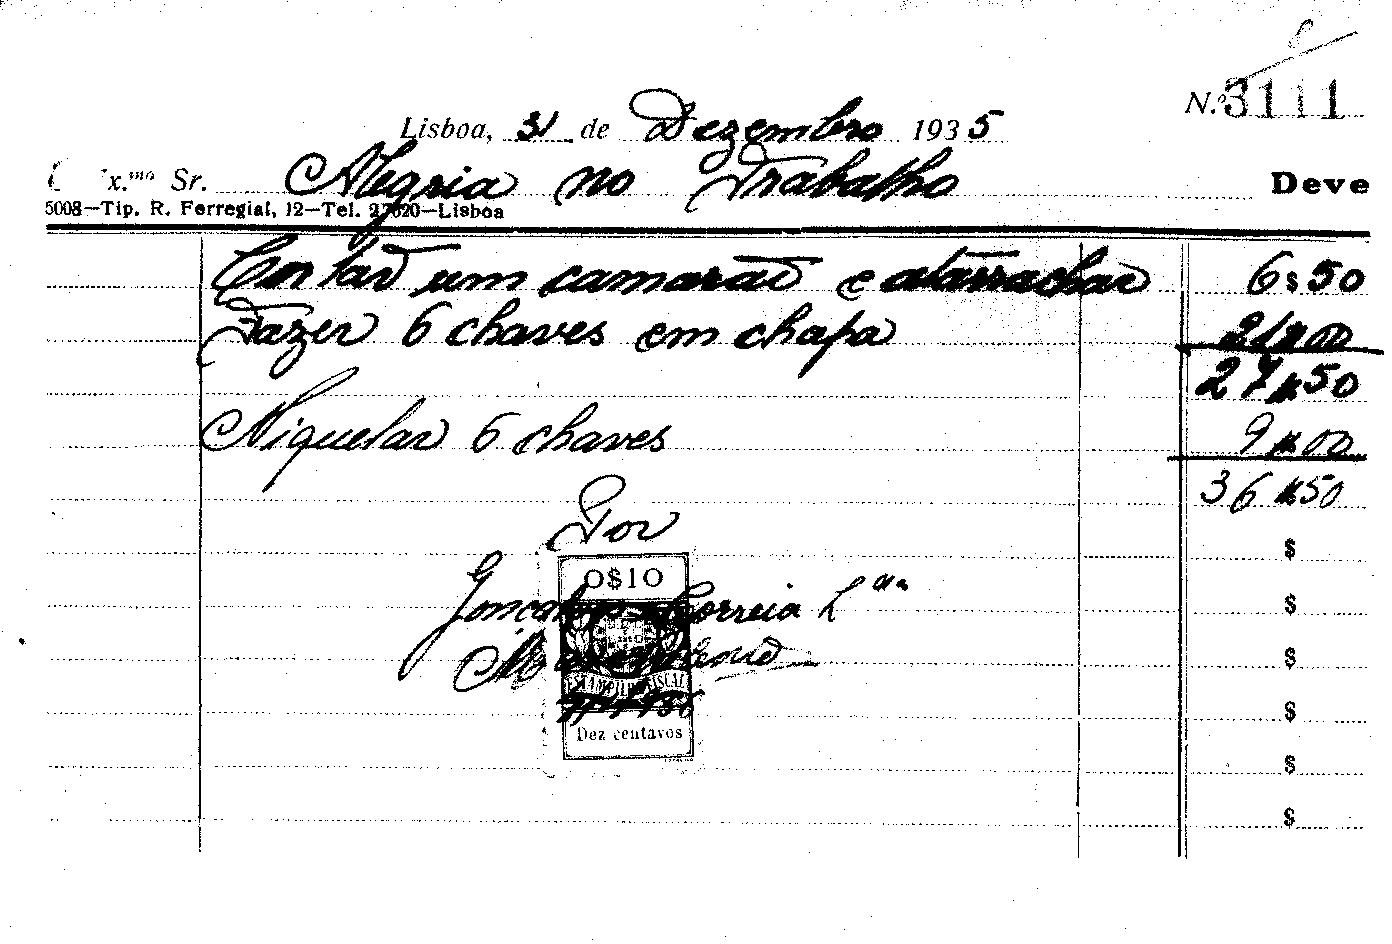 N.º 3111
Lisboa, 31 de Dezembro 1935
x.mo Sr. Alegria no Trabalho Deve
5008—Tip. R. Ferregial, 12—Tel. 27620—Lisboa
um camarão e atarrachar 6$50
Fazer 6 chaves em chapa 21$00
27$50
Niquelar 6 chaves 9$00
36$50
Por
$
0$10
Gonçalves Correia L.da
$
$
ESTAMPILHA FISCAL
$
Dez centavos
$
$